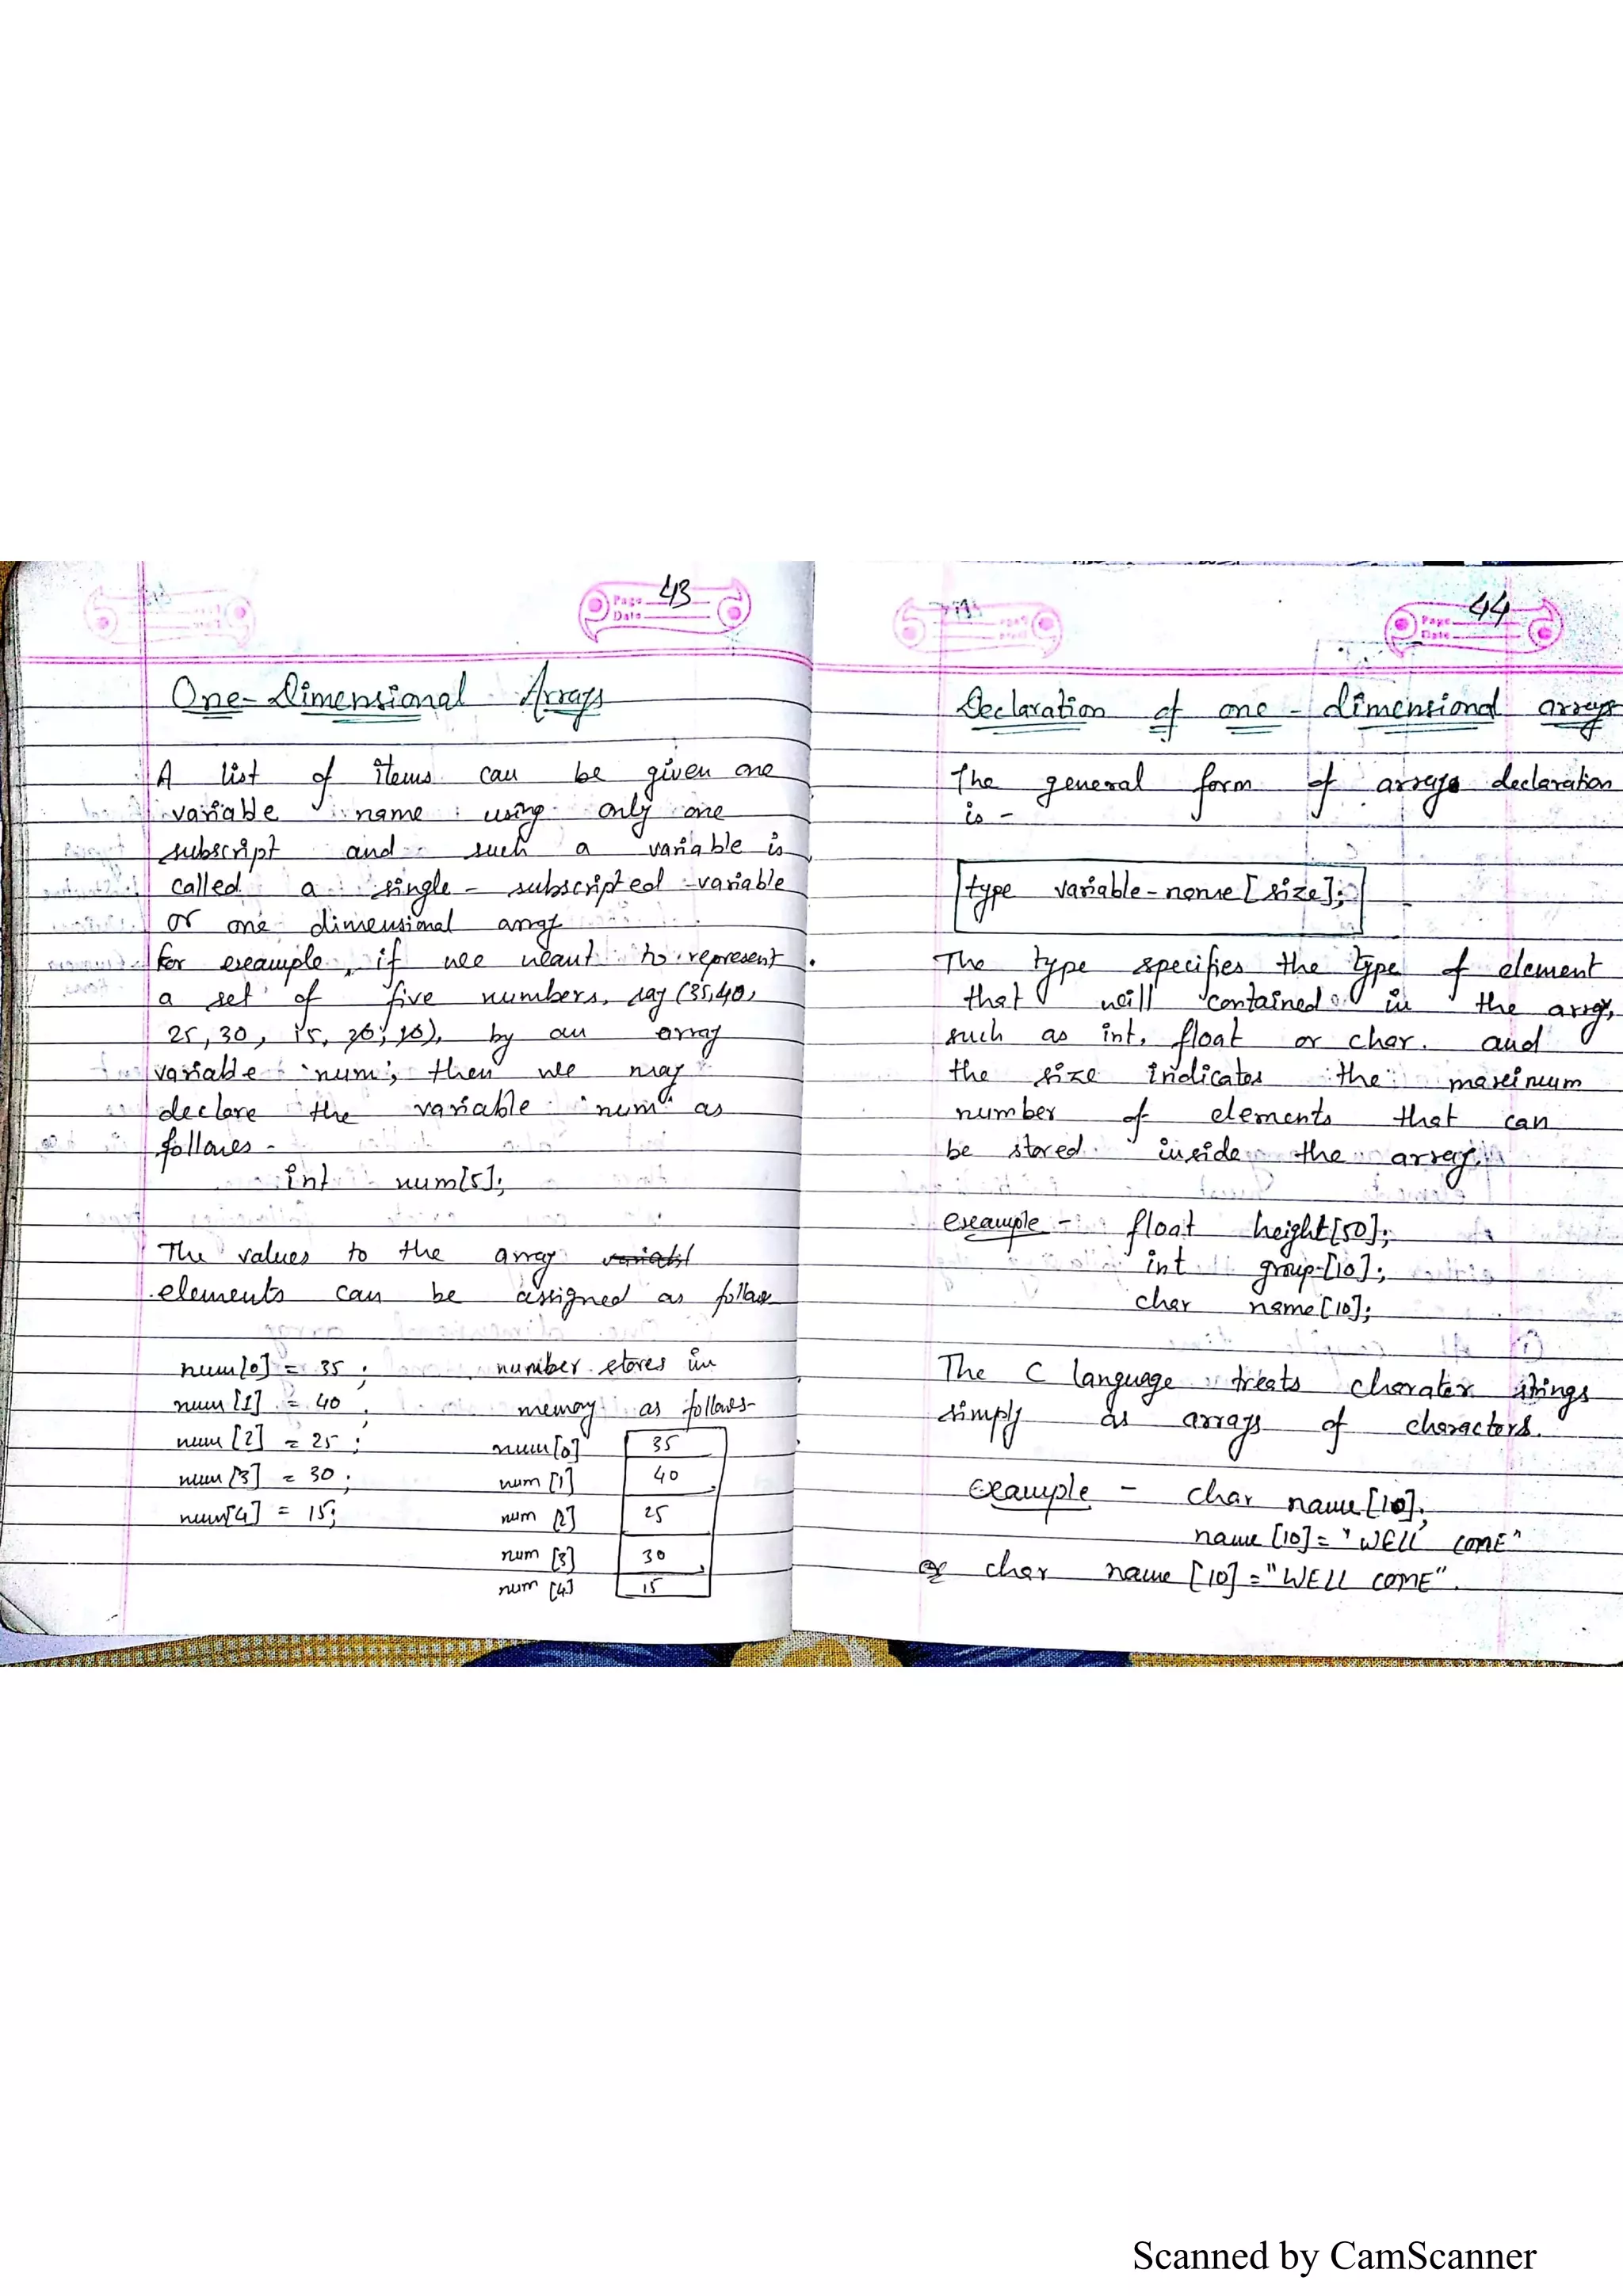 Page 43
Date
One-Dimensional Arrays
A list of items can be given one
variable name using only one
subscript and such a variable is
called a single-subscripted variable
or one dimensional array
for example, if we want to represent
a set of five numbers, say (35,40,
25, 30, 15, by an array
variable num, then we may
declare the variable num as
follows -
int num[5];
The values to the array
elements can be assigned as follow
num[0] = 35 ;
num [1] = 40
num [2] = 25 ;
num [3] = 30 ;
num[4] = 15;
number stores in
memory as follows-
num[0] 35
num [1] 40
num [2] 25
num [3] 30
num [4] 15
Page 44
Date
Declaration of one - dimensional arrays
The general form of arrays declaration
is -
type variable-name [size];
The type specifies the type of element
that will contained in the array,
such as int, float or char. and
the size indicates the maximum
number of elements that can
be stored inside the array.
example - float height[50];
int group[10];
char name[10];
The C language treats charater strings
simply as arrays of characters.
Example - char name[10];
name [10] = "WELL COME"
or char name [10] = "WELL COME".
Scanned by CamScanner